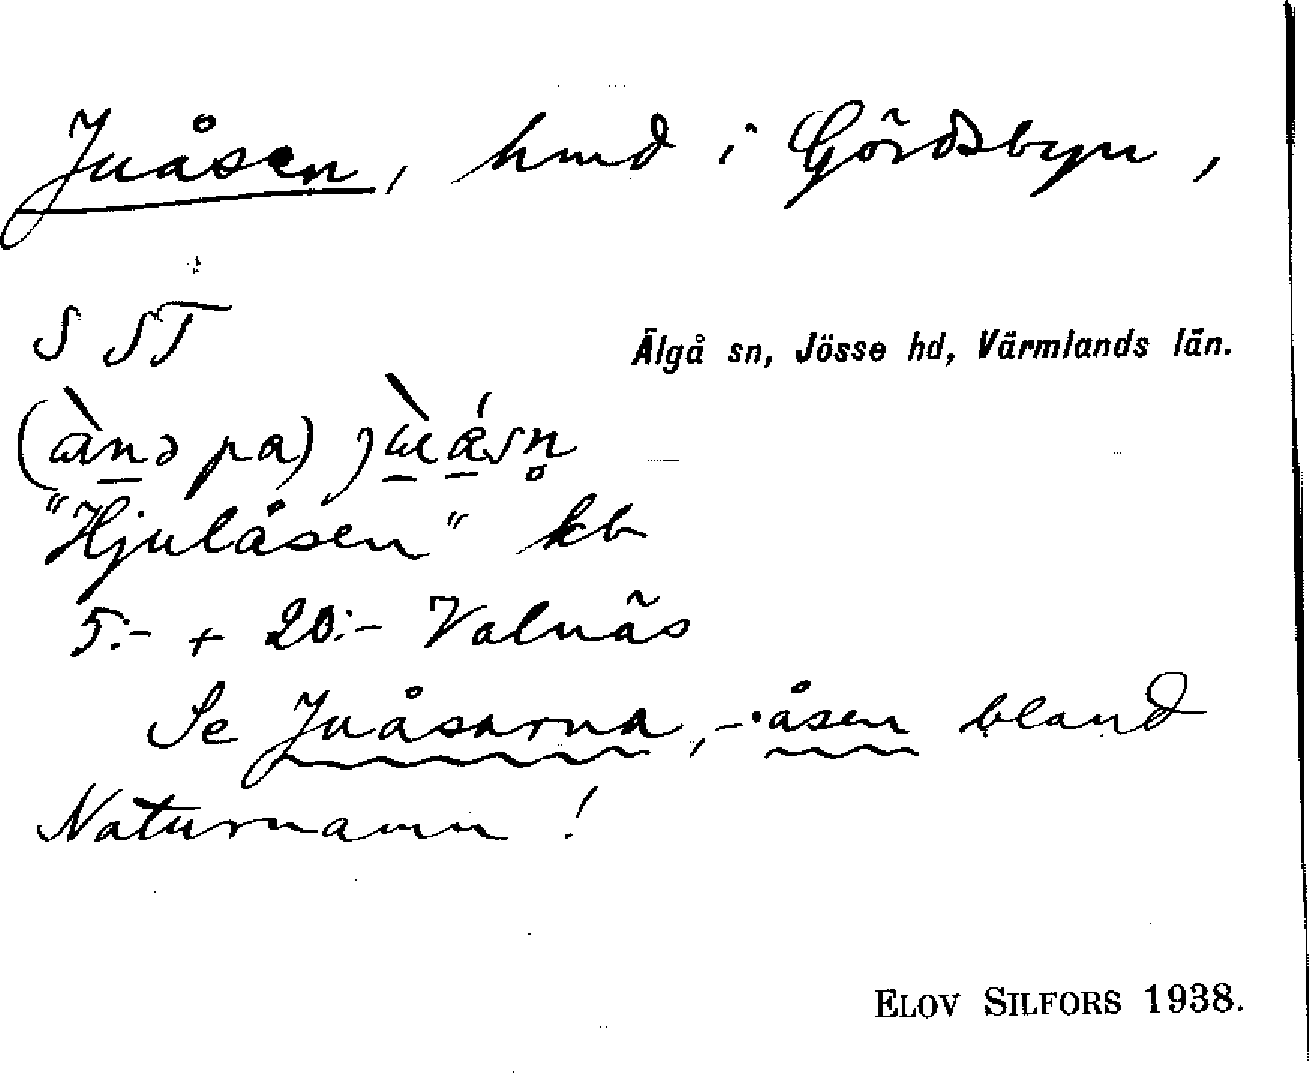 Juåsen, hmd i Gördsbyn,
S ST
Älgå sn, Jösse hd, Värmlands län.
"Hjulåsen" kb
5:- + 20:- Valnäs
Se Juåsarna, -åsen bland
Naturnamn!
ELOV SILFORS 1938.